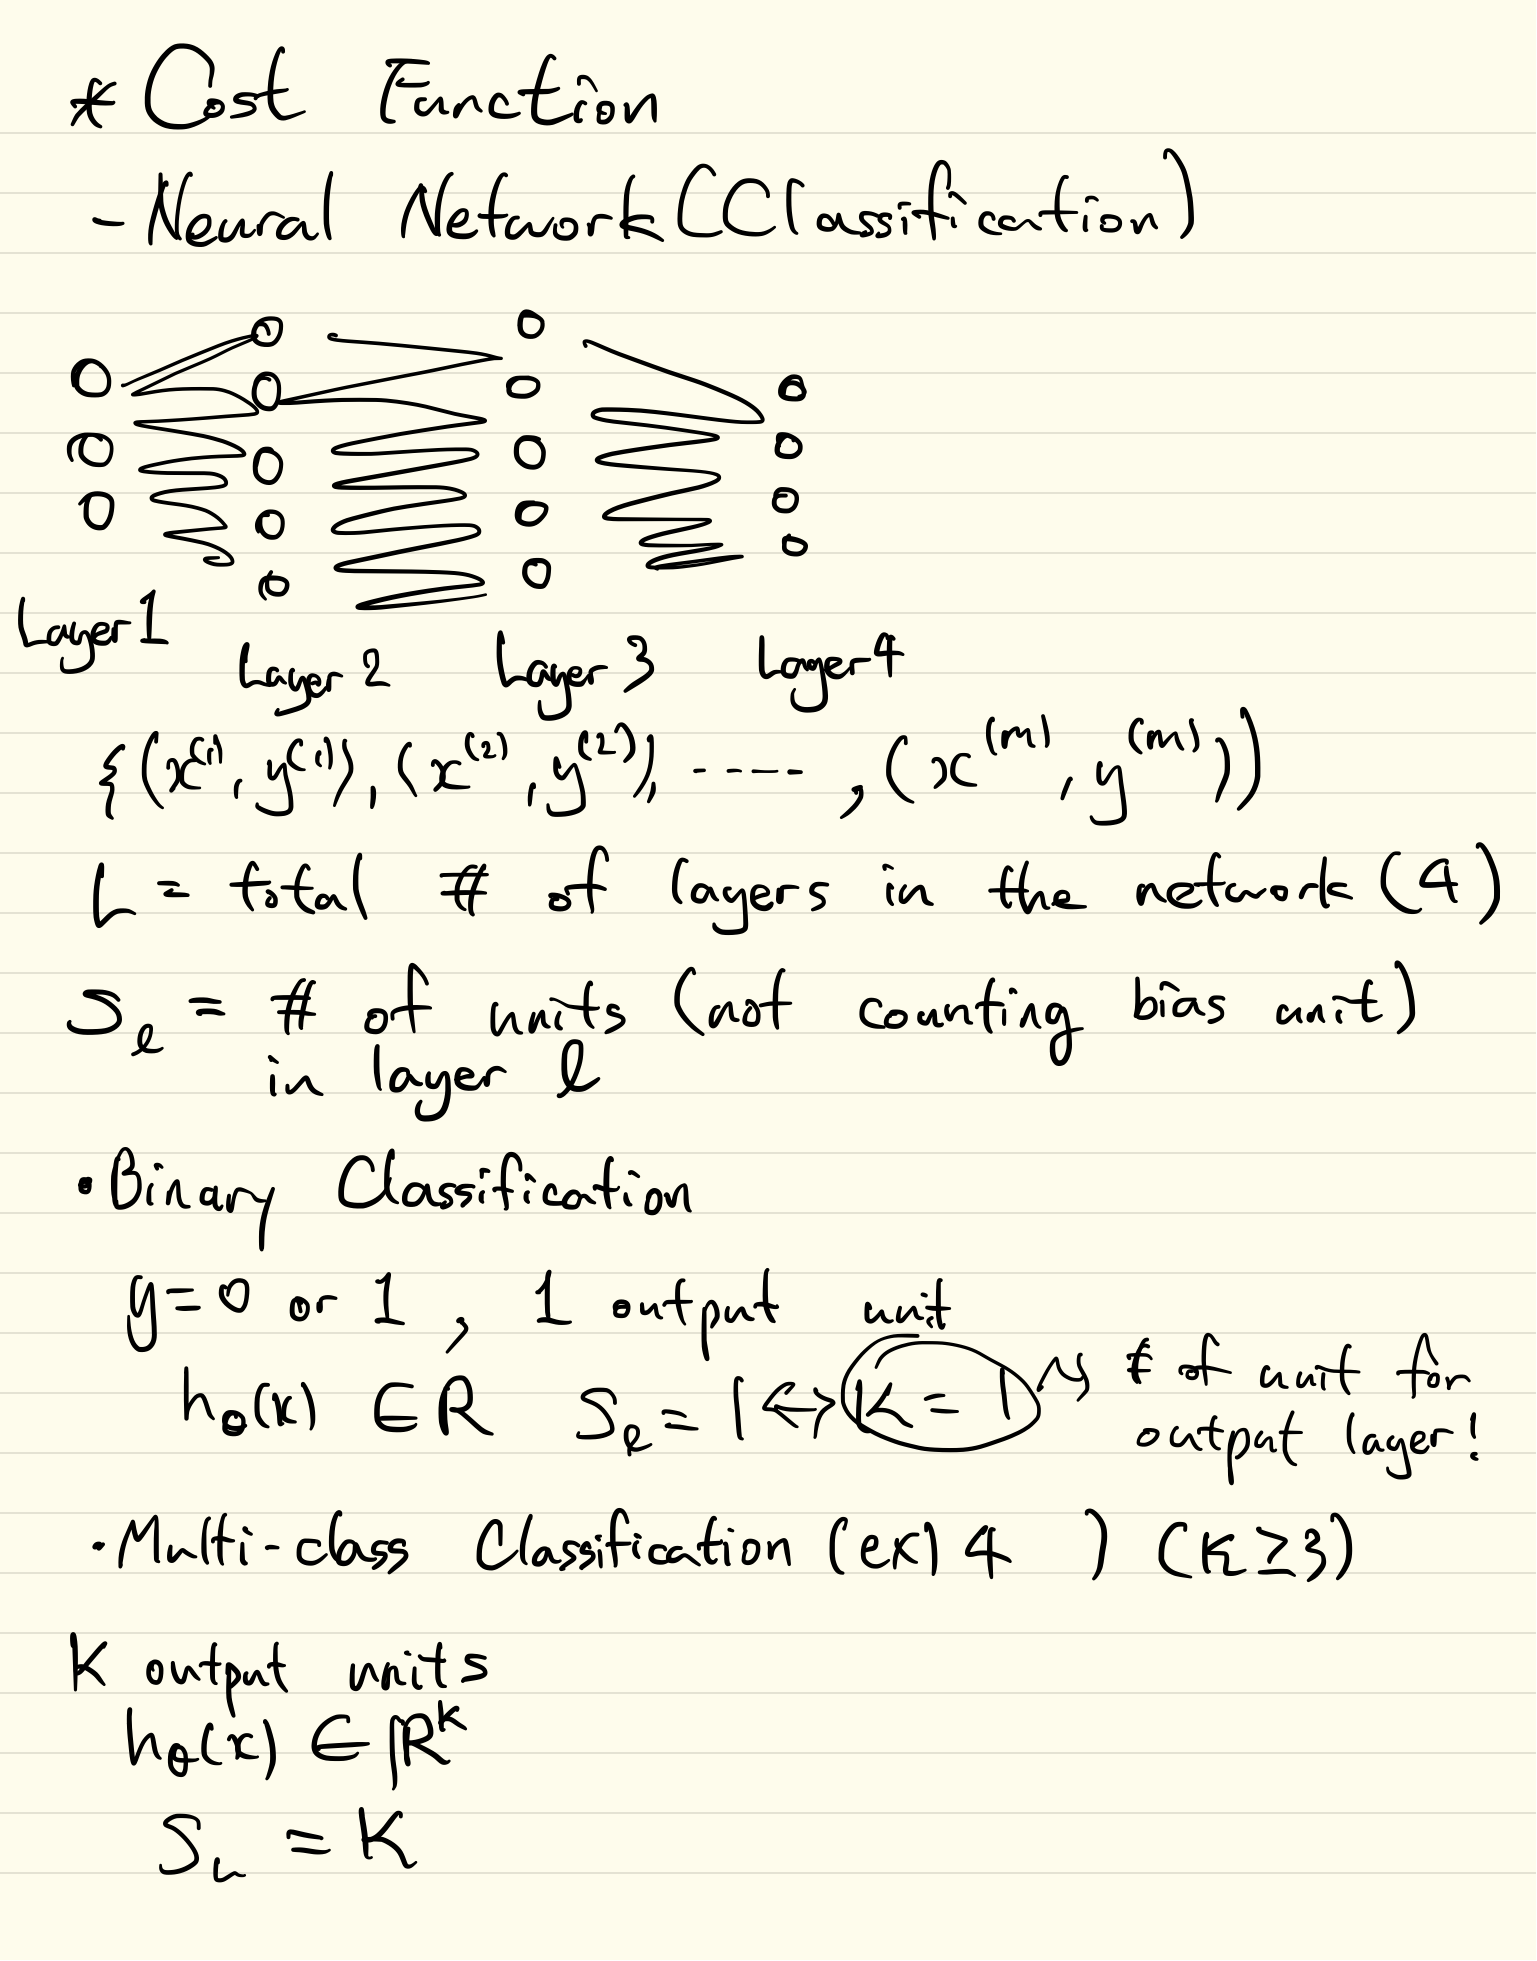 * Cost Function
- Neural Network (Classification)
Layer 1 Layer 2 Layer 3 Layer 4
{(x^(1), y^(1)), (x^(2), y^(2)), ----- , (x^(m), y^(m))}
L = total # of layers in the network (4)
S_l = # of units (not counting bias unit)
in layer l
• Binary Classification
y = 0 or 1 , 1 output unit
h_θ(x) ∈ R S_l = 1 ↔ K = 1 → # of unit for
output layer!
• Multi-class Classification (ex) 4 ) (K ≥ 3)
K output units
h_θ(x) ∈ ℝ^K
S_L = K